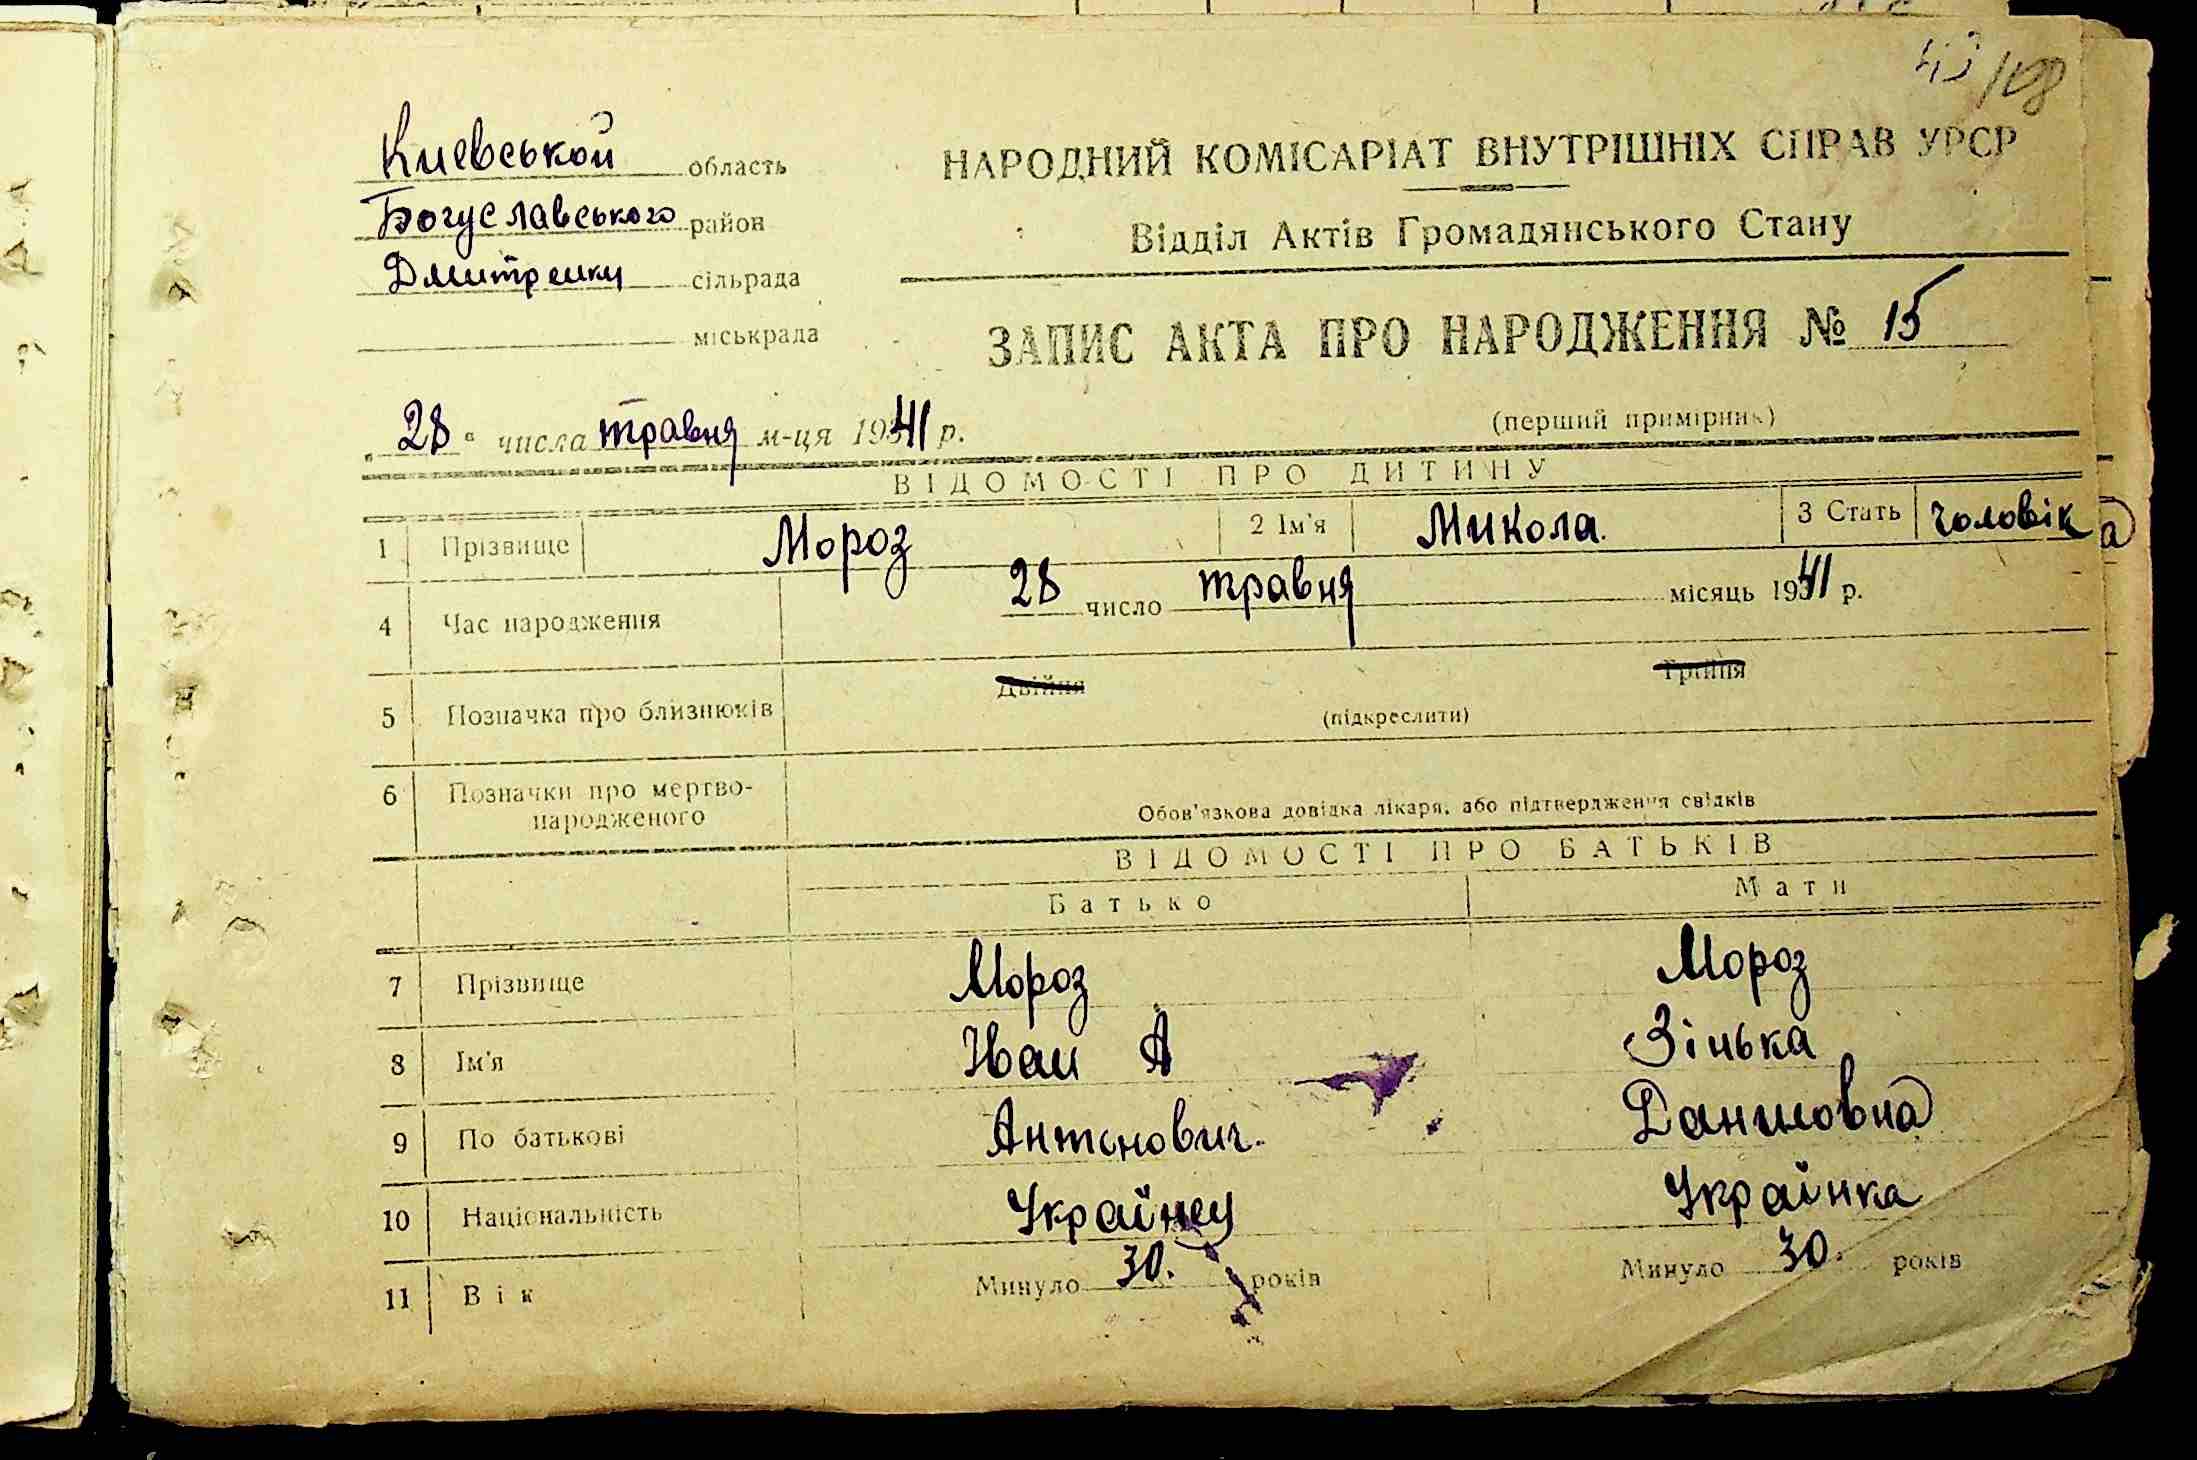 Киевської область
Богуславського район
Дмитренки сільрада
міськрада
НАРОДНИЙ КОМІСАРІАТ ВНУТРІШНІХ СПРАВ УРСР
Відділ Актів Громадянського Стану
ЗАПИС АКТА ПРО НАРОДЖЕННЯ № 15
(перший примірник)
„28“ числа травня м-ця 1941 р.
ВІДОМОСТІ ПРО ДИТИНУ
1 Прізвище Мороз 2 Ім'я Микола 3 Стать чоловік
4 Час народження 28 число травня місяць 1941 р.
5 Позначка про близнюків Двійня Трійня
(підкреслити)
6 Позначки про мертво-
народженого
Обов'язкова довідка лікаря, або підтвердження свідків
ВІДОМОСТІ ПРО БАТЬКІВ
Батько Мати
7 Прізвище Мороз Мороз
8 Ім'я Иван А Зінька
9 По батькові Антонович Даниловна
10 Національність Українец Українка
11 Вік Минуло 30. років Минуло 30. років